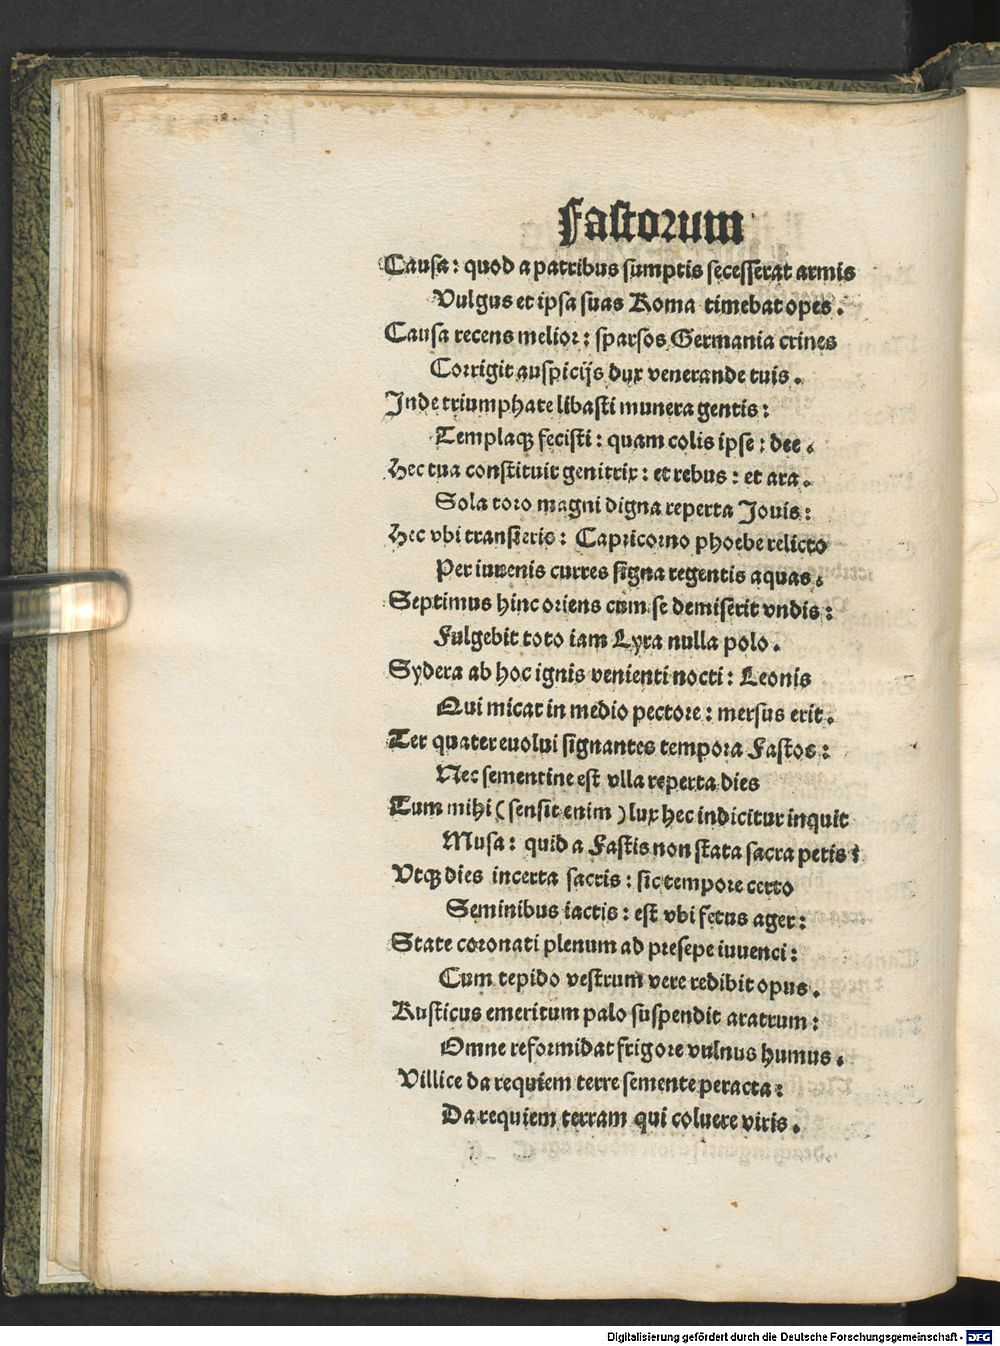 Fastorum
Causa: quod a patribus sumptis secesserat armis
Vulgus et ipsa suas Roma timebat opes.
Causa recens melior: sparsos Germania crines
Corrigit auspicijs dux venerande tuis.
Inde triumphate libasti munera gentis:
Templaqꝫ fecisti: quam colis ipse: dee.
Hec tua constituit genitrix: et rebus: et ara.
Sola toro magni digna reperta Iouis:
Hec vbi transieris: Capricorno phoebe relicto
Per iuuenis curres signa regentis aquas.
Septimus hinc oriens cum se demiserit vndis:
Fulgebit toto iam Lyra nulla polo.
Sydera ab hoc ignis venienti nocti: Leonis
Qui micat in medio pectore: mersus erit.
Ter quater euolui signantes tempora Fastos:
Nec sementine est vlla reperta dies
Tum mihi (sensit enim) lux hec indicitur inquit
Musa: quid a Fastis non stata sacra petis?
Vtqꝫ dies incerta sacris: sic tempore certo
Seminibus iactis: est vbi fetus ager:
State coronati plenum ad presepe iuuenci:
Cum tepido vestrum vere redibit opus.
Rusticus emeritum palo suspendit aratrum:
Omne reformidat frigore vulnus humus.
Villice da requiem terre semente peracta:
Da requiem terram qui coluere viris.
Digitalisierung gefördert durch die Deutsche Forschungsgemeinschaft - DFG